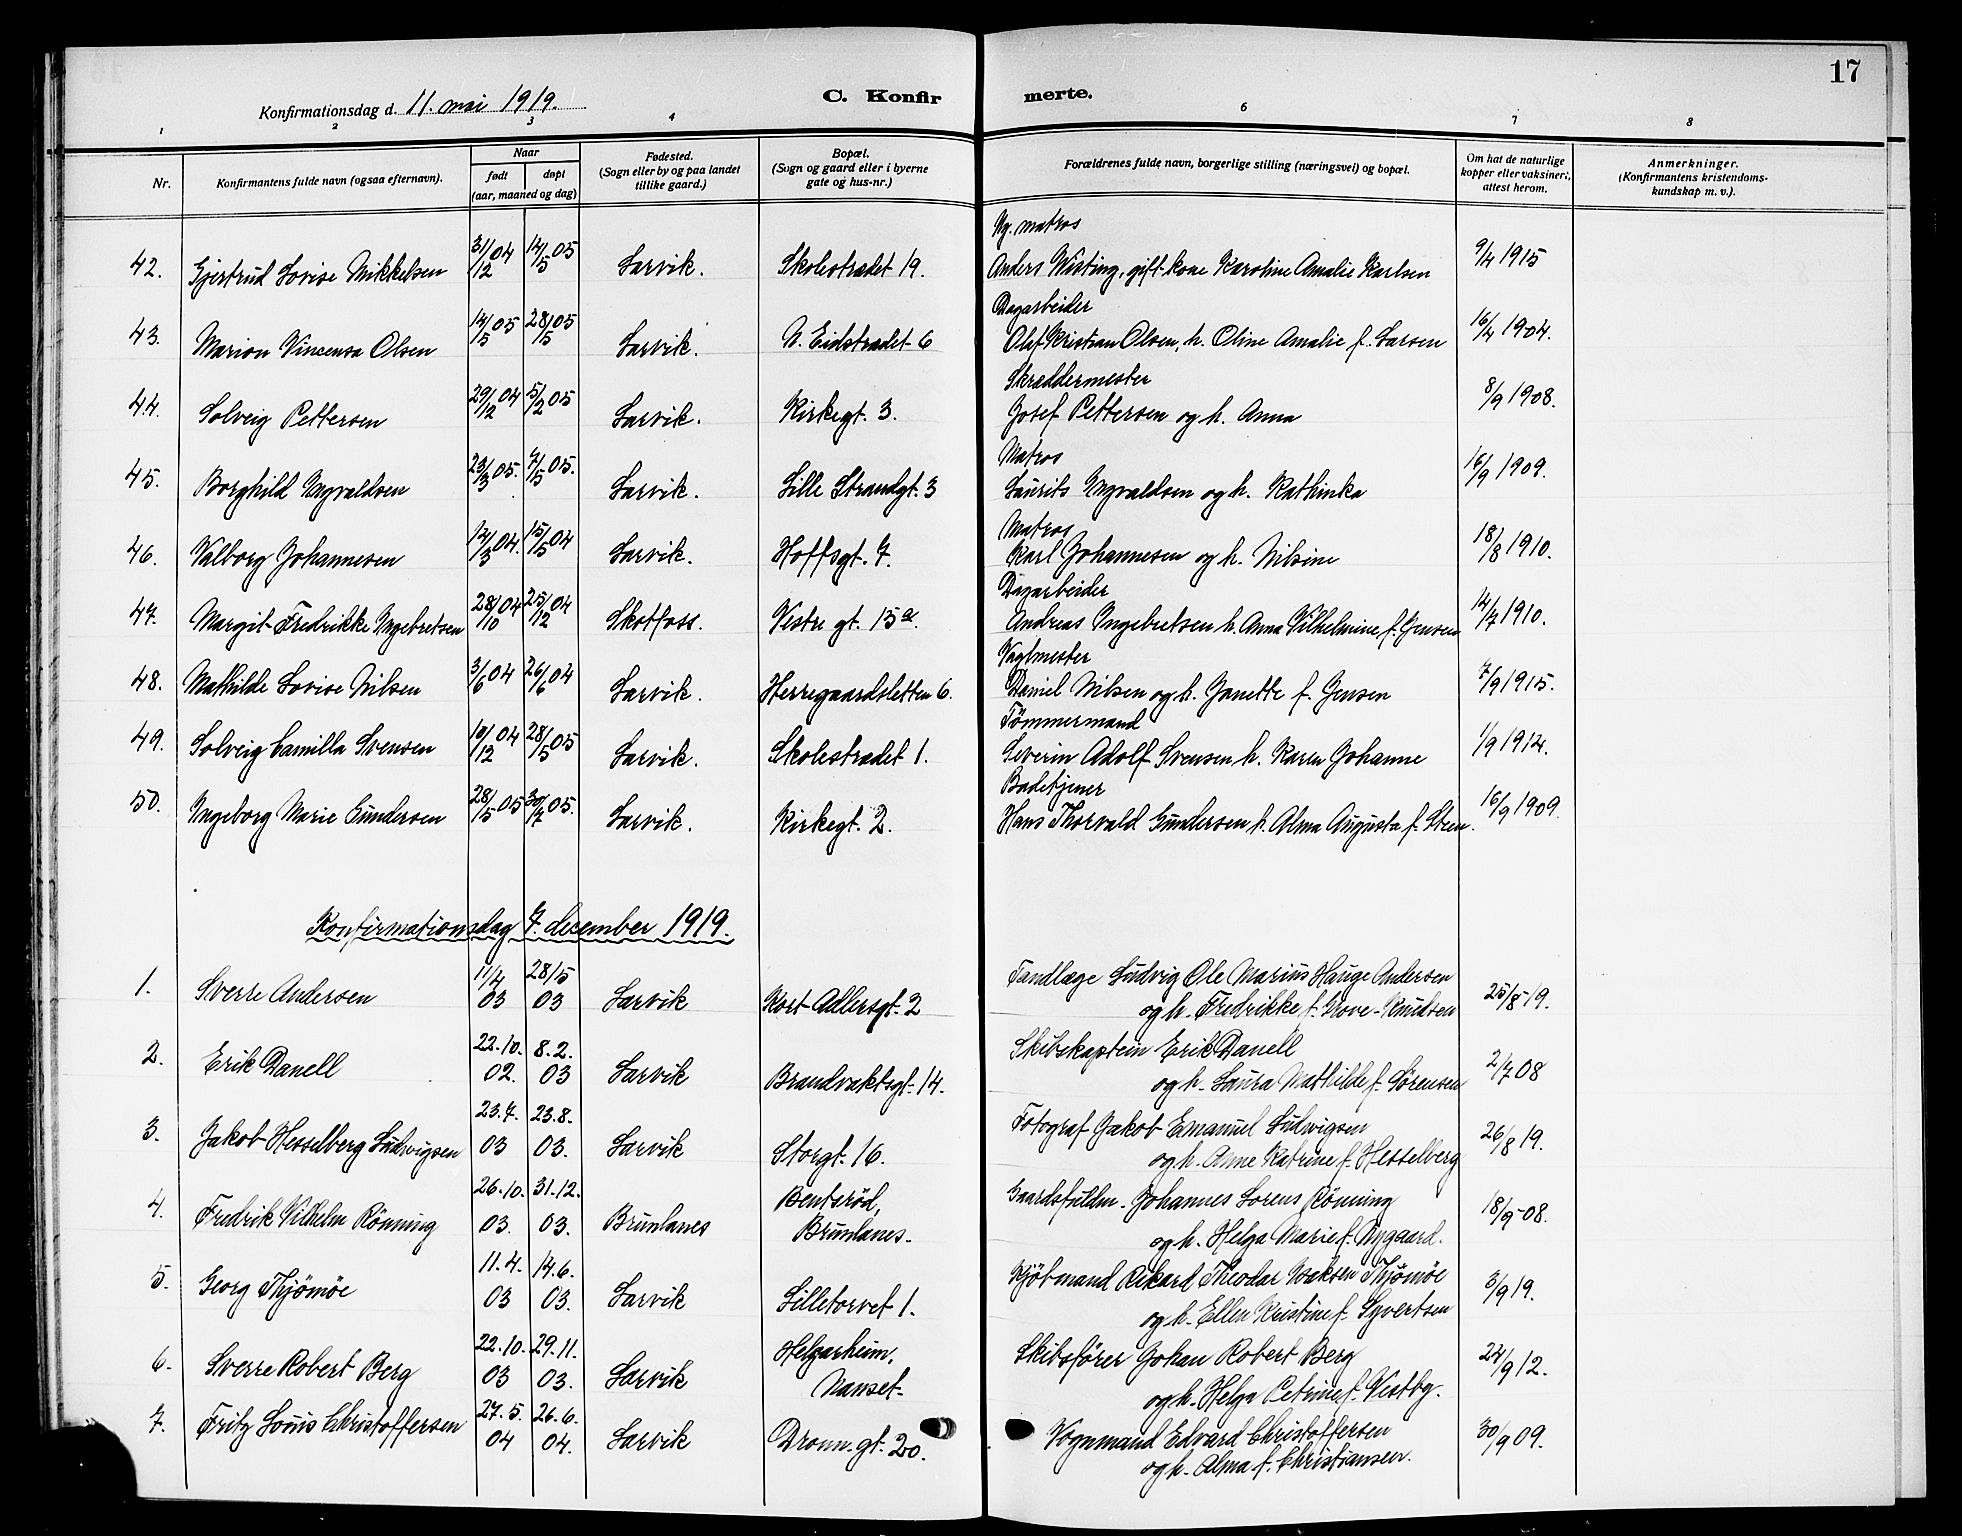 17
Konfirmationsdag d. 11. mai 1919.
C. Konfirmerte.
1 2 3 4 6 7 8
Nr.
Konfirmantens fulde navn (ogsaa efternavn).
Naar
født døpt
(aar, maaned og dag)
Fødested.
(Sogn eller by og paa landet
tillike gaard.)
Bopæl.
(Sogn og gaard eller i byerne
gate og hus-nr.)
Forældrenes fulde navn, borgerlige stilling (næringsvei) og bopæl.
Om hat de naturlige
kopper eller vaksiner,
attest herom.
Anmerkninger.
(Konfirmantens kristendoms-
kundskap m. v.).
Ug. matros
42. Gjertrud Lovise Mikkelsen 31/12 04 14/5 05 Larvik. Skolestrædet 19. Anders Wisting, gift. kone Karoline Amalie Karlsen 9/4 1915
Dagarbeider
43. Marion Vincensa Olsen 14/5 05 28/5 05 Larvik. N. Eidstrædet 6 Olaf Kristian Olsen, h. Oline Amalie f. Larsen 16/4 1904.
Skræddermester
44. Solveig Pettersen 29/12 04 5/2 05 Larvik. Kirkegt. 3. Josef Pettersen og h. Anna 8/9 1908.
Matros
45. Borghild Ingvaldsen 23/3 05. 7/5 05. Larvik. Lille Strandgt. 3 Laurits Ingvaldsen og h. Kathinka 16/9 1909.
Matros
46. Valborg Johannesen 12/3 04. 15/5 04 Larvik. Hoffsgt. 7. Karl Johannesen og h. Nilsine 18/8 1910.
Dagarbeider
47. Margit Fredrikke Ingebretsen 28/10 04 25/12 04 Skotfoss. Vestre gt. 15a. Andreas Ingebretsen h. Anna Vilhelmine f. Jensen 14/7 1910.
Vagtmester
48. Mathilde Lovise Nilsen 3/6 04 26/6 04 Larvik. Herregaardsletten 6. Daniel Nilsen og h. Janette f. Jensen 7/9 1915.
Tømmermand
49. Solveig Camilla Svensen 10/12 04 28/5 05 Larvik. Skolestrædet 1. Severin Adolf Svensen h. Karen Johanne 1/9 1914.
Badetjener
50. Ingeborg Marie Gundersen 28/5 05 30/7 05. Larvik. Kirkegt. 2. Hans Thorvald Gundersen h. Alma Augusta f. Steen. 16/9 1909.
Konfirmationsdag 7. december 1919.
1. Sverre Andersen 11/4 03 28/5 03 Larvik Kort Adlersgt. 2 Tandlæge Ludvig Ole Marius Hauge Andersen
og h. Fredrikke f. Grove-Knudsen 25/8-19.
2. Erik Danell 22.10. 02. 8.2. 03 Larvik Brandvaktsgt. 14. Skibskaptein Erik Danell
og h. Laura Mathilde f. Sørensen 2/7 08
3. Jakob Hesselberg Ludvigsen 23.7. 03 23.8. 03. Larvik Storgt. 16. Fotograf Jakob Emanuel Ludvigsen
og h. Anne Katrine f. Hesselberg 26/8 19.
4. Fredrik Vilhelm Rönning 26.10. 03. 31.12. 03. Brunlanes Bentsröd, Brunlanes. Gaardsfuldm. Johannes Lorens Rönning
og h. Helga Marie f. Nygaard. 18/9-08.
5. Georg Thjömöe 11.4. 03 14.6. 03. Larvik Lilletorvet 1. Kjöbmand Rikard Theodor Isaksen Thjömöe
og h. Ellen Kristine f. Syvertsen 3/9 19.
6. Sverre Robert Berg 22.10. 03 29.11. 03. Larvik Helgarheim, Nanset. Skibsförer Johan Robert Berg
og h. Helga Petrine f. Vestby. 24/9 12.
7. Fritz Louis Christoffersen 27.5. 04 26.6. 04. Larvik Dronn. gt. 20. Vognmand Edvard Christoffersen
og h. Alma f. Christiansen. 30/9 09.